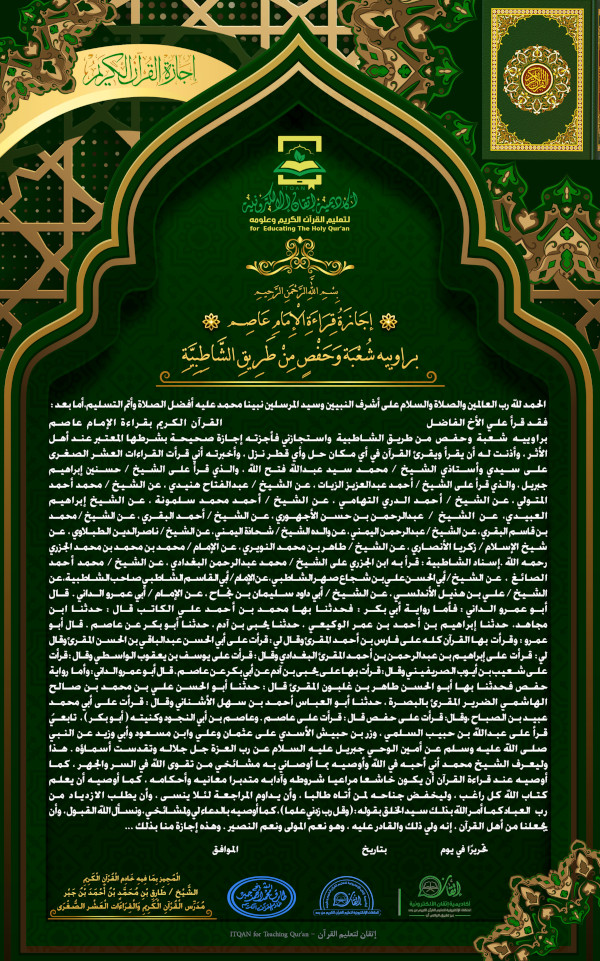 إجازة القرآن الكريم
ITQAN
أكاديمية إتقان الإلكترونية
لتعليم القرآن الكريم وعلومه
for Educating The Holy Qur'an
بِسْمِ اللَّهِ الرَّحْمَنِ الرَّحِيمِ
إِجَازَةُ قِرَاءَةِ الْإِمَامِ عَاصِمٍ
بِرَاوِيَيْهِ شُعْبَةَ وَحَفْصٍ مِنْ طَرِيقِ الشَّاطِبِيَّةِ
الحمد لله رب العالمين والصلاة والسلام على أشرف النبيين وسيد المرسلين نبينا محمد عليه أفضل الصلاة وأتم التسليم،أما بعد :
فقد قرأ علي الأخ الفاضل القرآن الكريم بقراءة الإمام عاصم
براوييه شعبة وحفص من طريق الشاطبية واستجازني فأجزته إجازة صحيحة بشرطها المعتبر عند أهل
الأثر ، وأذنت له أن يقرأ ويقرئ القرآن في أي مكان حل وأي قطر نزل . وأخبرته أني قرأت القراءات العشر الصغرى
على سيدي وأستاذي الشيخ / محمد سيد عبدالله فتح الله . والذي قرأ على الشيخ / حسنين إبراهيم
جبريل ، والذي قرأ على الشيخ / أحمد عبدالعزيز الزيات ، عن الشيخ / عبدالفتاح هنيدي ، عن الشيخ / محمد أحمد
المتولي ، عن الشيخ / أحمد الدري التهامي ، عن الشيخ / أحمد محمد سلمونة ، عن الشيخ إبراهيم
العبيدي، عن الشيخ / عبدالرحمن بن حسن الأجهوري ، عن الشيخ / أحمد البقري ، عن الشيخ / محمد
بن قاسم البقري، عن الشيخ / عبدالرحمن اليمني، عن والده الشيخ / شحاذة اليمني، عن الشيخ / ناصرالدين الطبلاوي ، عن
شيخ الإسلام / زكريا الأنصاري ، عن الشيخ / طاهر بن محمد النويري ، عن الإمام / محمد بن محمد بن محمد الجزري
رحمه الله .إسناد الشاطبية : قرأ به ابن الجزري على الشيخ / محمد عبدالرحمن البغدادي ، عن الشيخ / محمد أحمد
الصائغ ، عن الشيخ / أبي الحسن علي بن شجاع صهر الشاطبي، عن الإمام / أبي القاسم الشاطبي صاحب الشاطبية، عن
الشيخ / علي بن هذيل الأندلسي ، عن الشيخ / أبي داود سليمان بن نجاح ، عن الإمام / أبي عمرو الداني . قال
أبو عمرو الداني : فأما رواية أبي بكر : فحدثنا بها محمد بن أحمد علي الكاتب قال : حدثنا ابن
مجاهد، حدثنا إبراهيم بن أحمد بن عمر الوكيعي ، حدثنا يحيى بن آدم ، حدثنا أبو بكر عن عاصم . قال أبو
عمرو : وقرأت بها القرآن كله على فارس بن أحمد المقرئ وقال لي : قرأت على أبي الحسن عبدالباقي بن الحسن المقرئ وقال
لي : قرأت على إبراهيم بن عبدالرحمن بن أحمد المقرئ البغدادي وقال : قرأت على يوسف بن يعقوب الواسطي وقال : قرأت
على شعيب بن أيوب الصريفيني وقال : قرأت بها على يحيى بن آدم عن أبي بكر عن عاصم. قال أبو عمرو الداني : وأما رواية
حفص فحدثنا بها أبو الحسن طاهر بن غلبون المقرئ قال : حدثنا أبو الحسن علي بن محمد بن صالح
الهاشمي الضرير المقرئ بالبصرة ، حدثنا أبو العباس أحمد بن سهل الأشناني وقال : قرأت على أبي محمد
عبيد بن الصباح ،وقال: قرأت على حفص قال : قرأت على عاصم . وعاصم بن أبي النجود وكنيته ( أبو بكر ) ، تابعيّ
قرأ على عبدالله بن حبيب السلمي ، وزر بن حبيش الأسدي على عثمان وعلي وابن مسعود وأبي وزيد عن النبي
صلى الله عليه وسلم عن أمين الوحي جبريل عليه السلام عن رب العزة جل جلاله وتقدست أسماؤه . هذا
وليعرف الشيخ محمد أني أحبه في الله وأوصيه بما أوصاني به مشائخي من تقوى الله في السر والجهر . كما
أوصيه عند قراءة القرآن أن يكون خاشعا مراعيا شروطه وآدابه متدبرا معانيه وأحكامه . كما أوصيه أن يعلم
كتاب الله كل راغب ، وليخفض جناحه لمن أتاه طالبا ، وأن يداوم المراجعة لئلا ينسى ، وأن يطلب الازدياد من
رب العباد كما أمر الله بذلك سيد الخلق بقوله : ( وقل رب زدني علما ) ، كما أوصيه بالدعاء لي ولمشائخي، ونسأل الله القبول ، وأن
يجعلنا من أهل القرآن ، إنه ولي ذلك والقادر عليه ، وهو نعم المولى ونعم النصير . وهذه إجازة منا بذلك ...
تحريرًا في يوم بتاريخ الموافق
المجيز بما فيه خادم القرآن الكريم
الشيخ / طارق بن محمد بن أحمد بن جبر
مدرس القرآن الكريم والقراءات العشر الصغرى
إتقان
أكاديمية إتقان الإلكترونية
إتقان لتعليم القرآن - ITQAN for Teaching Qur'an